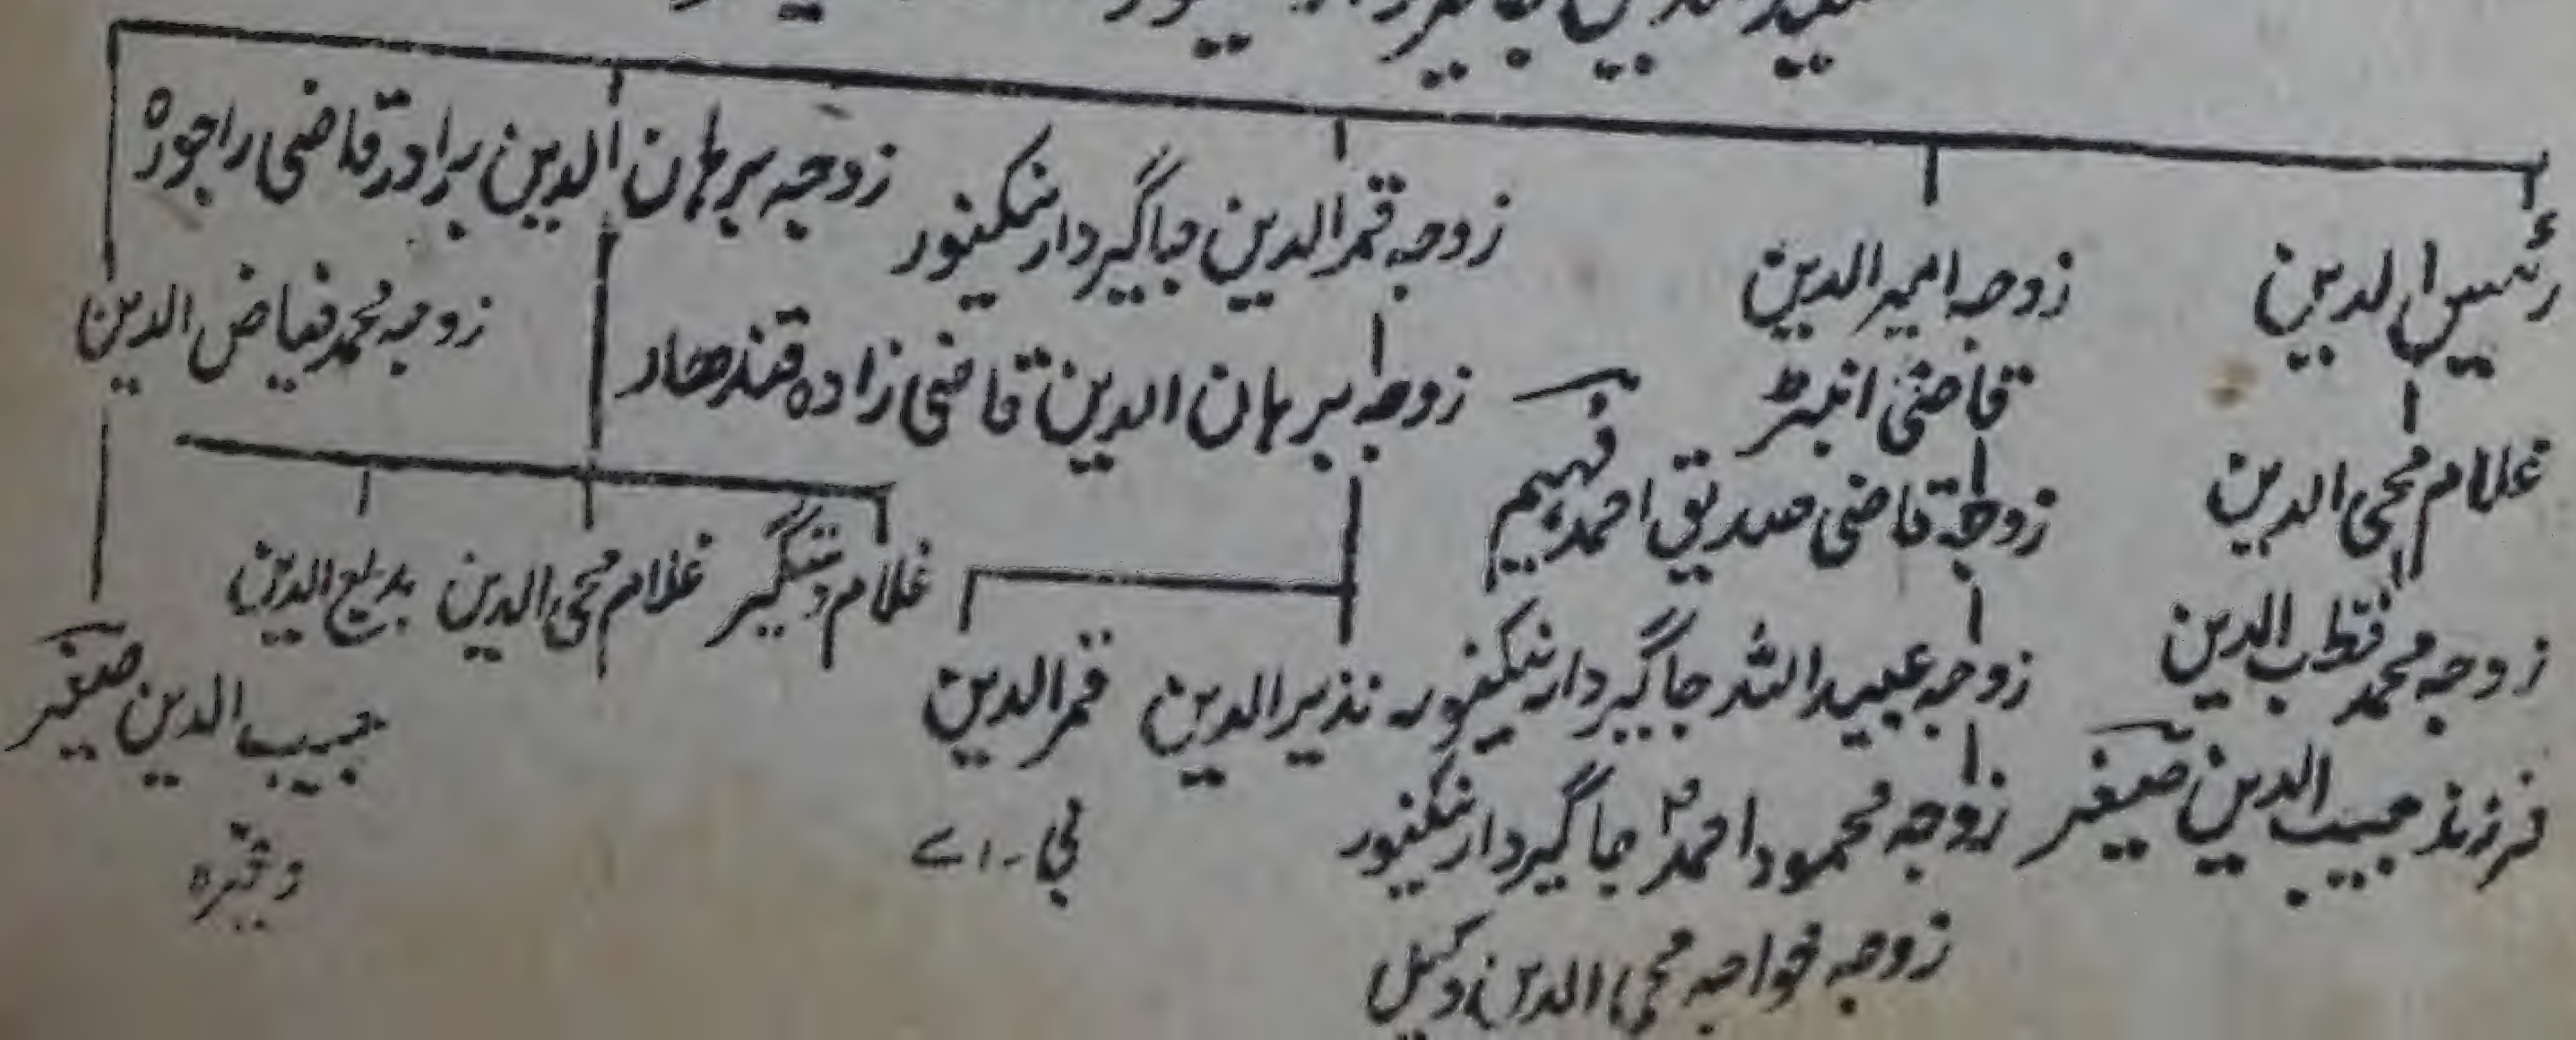 رئیس الدین
غلام محی الدین
زوجہ محمد قطب الدین
فرزند حبیب الدین صغیر
زوجہ امیر الدین
قاضی انبڑ
زوجہ قاضی صدیق احمد فہیم
زوجہ عبید اللہ جاگیردار نیکنور
زوجہ محمود احمد جاگیردار نیکنور
زوجہ خواجہ محی الدین وکیل
زوجہ قمر الدین جاگیردار نیکنور
زوجہ برہان الدین قاضی زادہ قندھار
نذیر الدین
قمر الدین
بی۔اے
زوجہ برہان الدین برادر قاضی راجورہ
غلام دستگیر
غلام محی الدین
بدیع الدین
زوجہ محمد فیاض الدین
حبیب الدین صغیر
وغیرہ